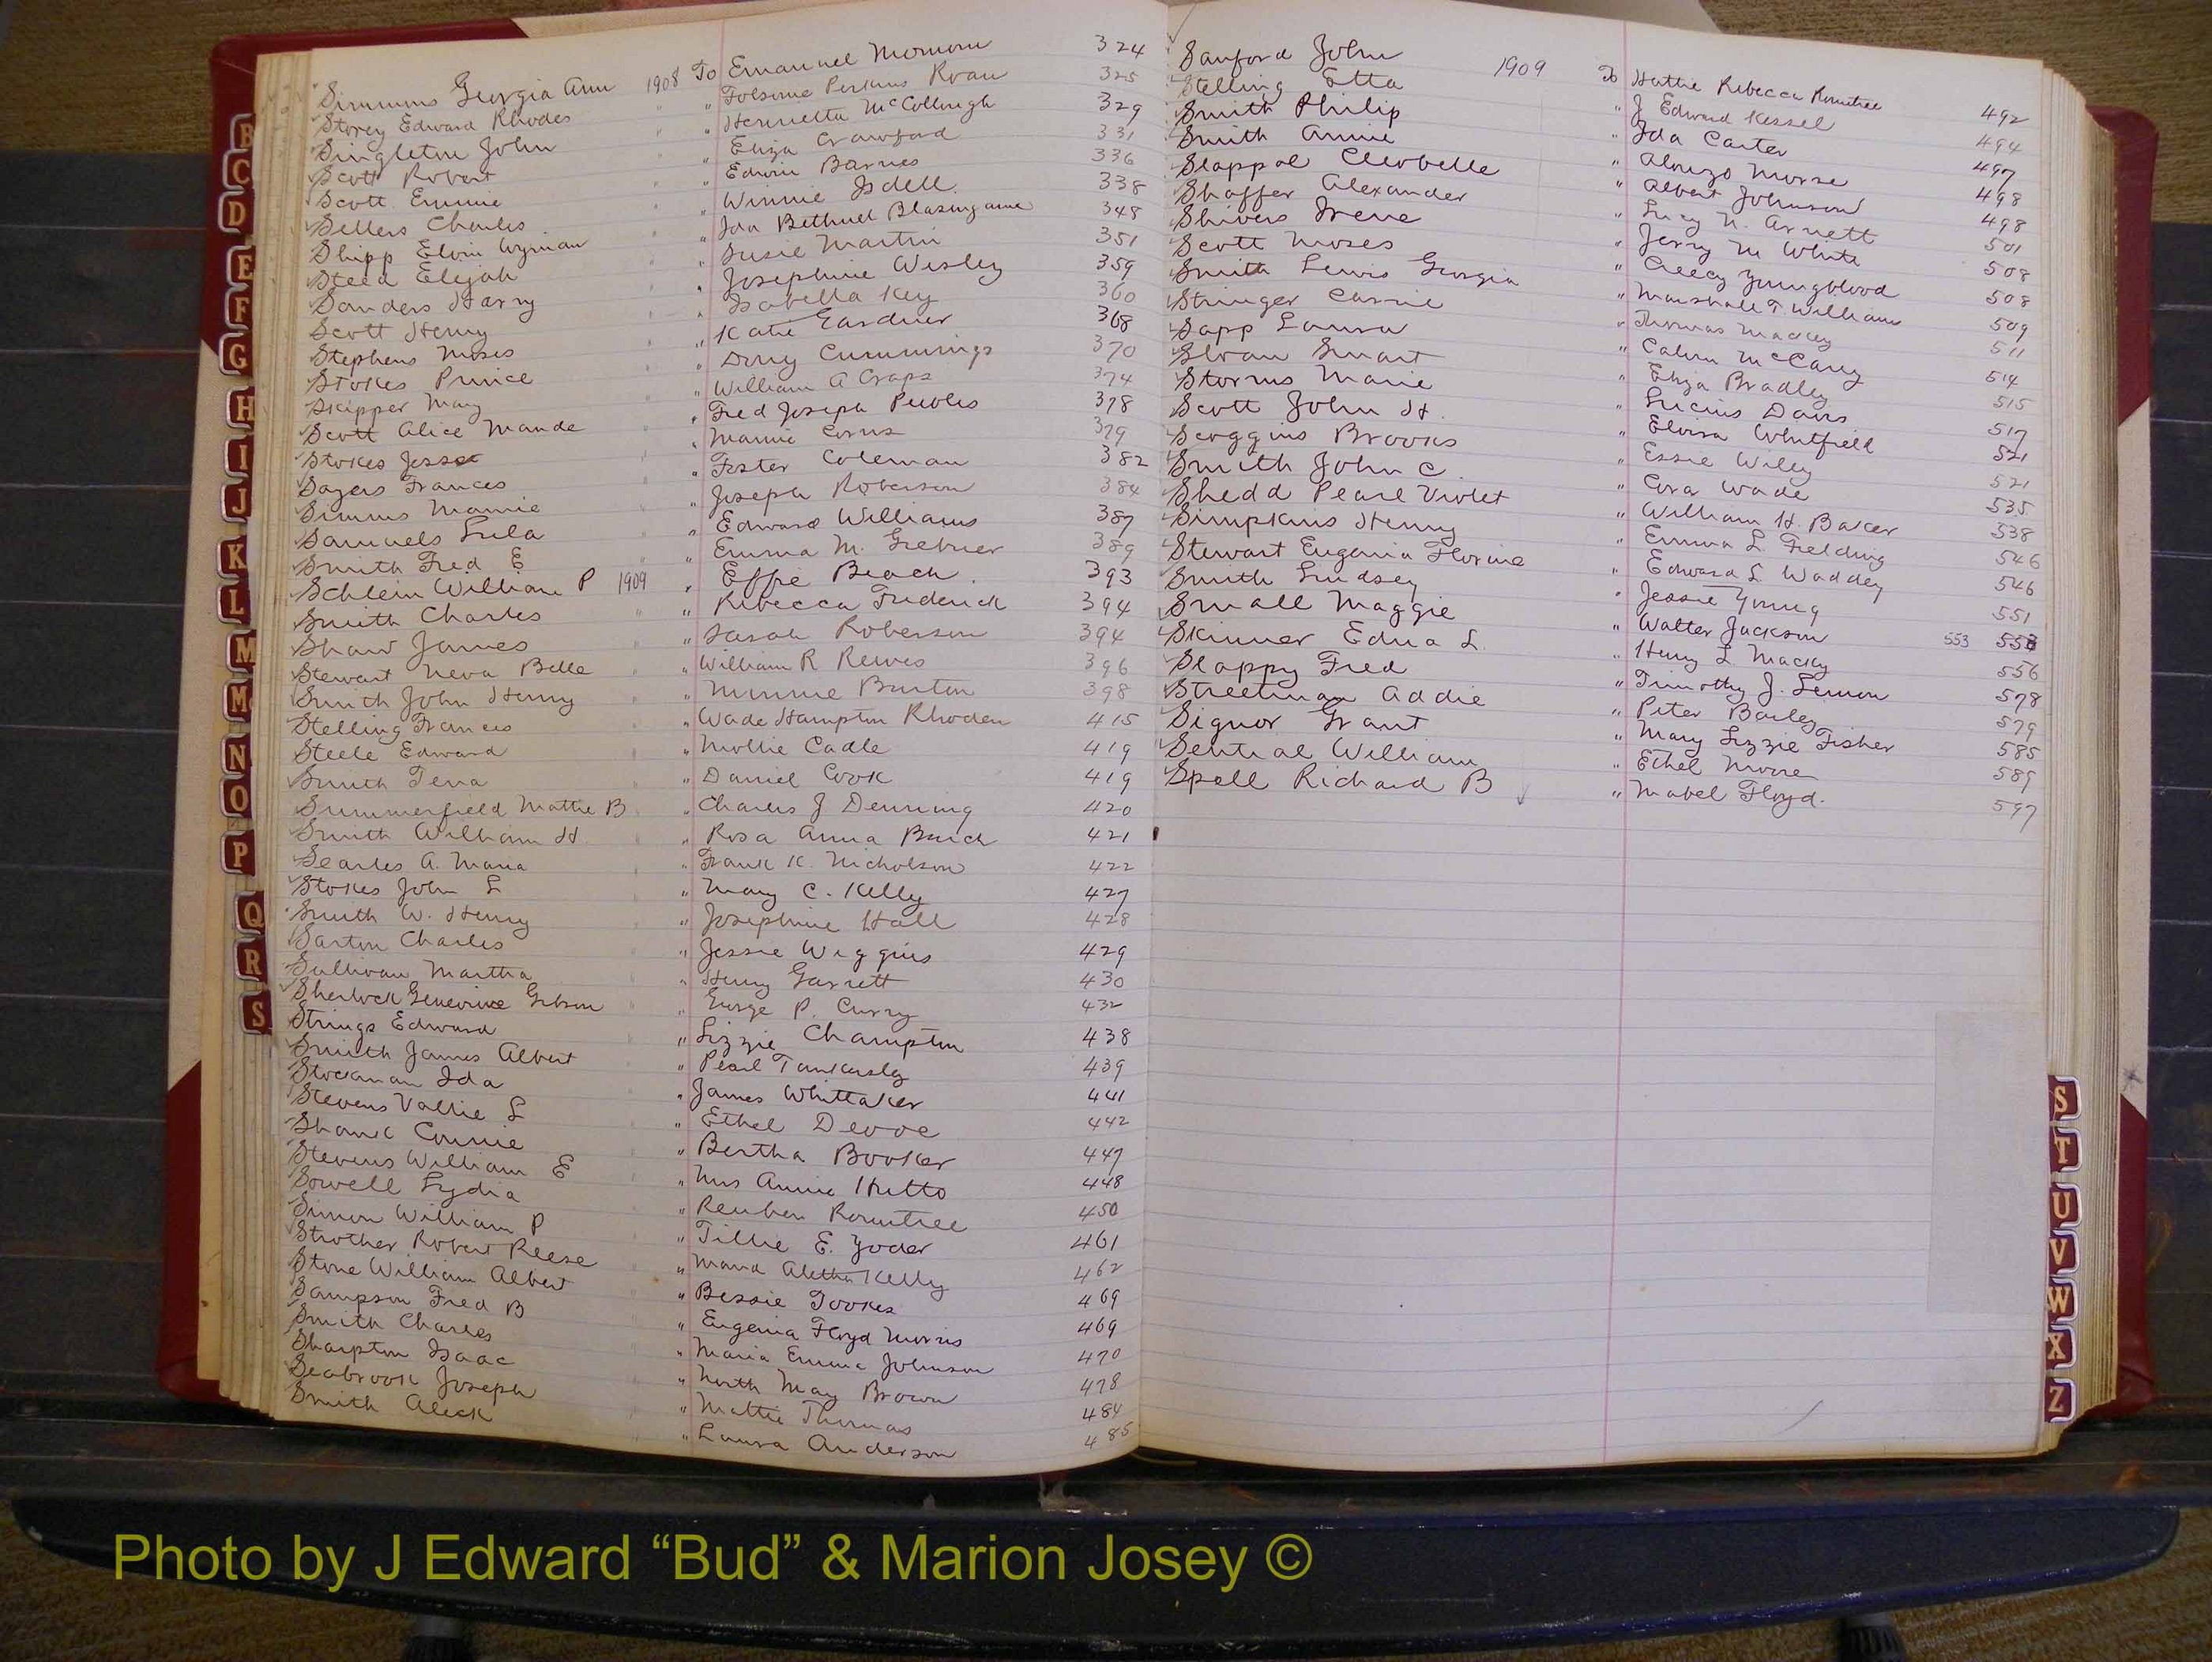 Simmons Georgia Ann 1908 To Emanuel 324
Storey Edward Rhodes " Folsome Perkins Roan 325
Singleton John " Henrietta McCollough 329
Scott Robert " Eliza Crawford 331
Scott Emmie " Edwin Barnes 336
Sellers Charles " Winnie Isdell 338
Shipp Elvin Wyman " Ida Bethuel Blasingame 348
Steed Elejah " Susie Martin 351
Sanders Harry " Josephine Wesley 359
Scott Henry " Isabella Key 360
Stephens Moses " Katie Gardner 368
Stokes Prince " Cummings 370
Skipper May " William A Craps 374
Scott Alice Maude " Fred Joseph Peebles 378
Stokes Jesse " Mamie Corns 379
Sayers Frances " Foster Coleman 382
Simms Mamie " Joseph Roberson 384
Samuels Lula " Edward Williams 387
Smith Fred E " Emma M. Grebner 389
Schlein William P 1909 " Effie Beach 393
Smith Charles " " Rebecca Frederick 394
Shaw James " " Sarah Roberson 394
Stewart Neva Belle " " William R Reeves 396
Smith John Henry " " Minnie Burton 398
Stelling Frances " " Wade Hampton Rhoden 415
Steele Edward " " Mollie Cadle 419
Smith Tena " " Daniel Cook 419
Summerfield Mattie B " Charles J Denning 420
Smith William H " Rosa Anna Burch 421
Searles A. Maria " Frank K. Nicholson 422
Stokes John L " Mary C. Kelly 427
Smith W. Henry " " Josephine Hall 428
Sarton Charles " " Jessie Wiggins 429
Sullivan Martha " " Henry Garrett 430
Sherlock Genevieve Gibson " " George P. Curry 432
Strings Edward " Lizzie Champton 438
Smith James Albert " " Pearl Tankersly 439
Stockman Ida " " James Whittaker 441
Stevens Vallie L " " Ethel Devoe 442
Shank Connie " " Bertha Booker 447
Stevens William E " " Mrs Annie Hutto 448
Sowell Lydia " " Reuben Rowntree 450
Simon William P " " Tillie E. Yoder 461
Strother Robert Reese " " Maud Aletha Kelly 462
Stone William Albert " " Bessie Tookes 469
Sampson Fred B " " Eugenia Floyd Morris 469
Smith Charles " " Maria Emma Johnson 470
Sharpton Isaac " " North May Brown 478
Seabrook Joseph " " Mattie Thomas 484
Smith Aleck " " Laura Anderson 485
Sanford John 1909 To Hattie Rebecca Rowntree 492
Stelling Etta " J Edward Kessel 494
Smith Philip " Ida Carter 497
Smith Annie " Alonzo Morse 498
Slappol Cleobelle " Albert Johnson 498
Shaffer Alexander " Lucy N. Arnett 501
Shivers Irene " Jerry M White 508
Scott Moses " Creecy Youngblood 508
Smith Lewis Georgia " Marshall T Williams 509
Stringer Carrie " Thomas Mackey 511
Sapp Laura " Calvin McCarey 514
Sloan Smart " Eliza Bradley 515
Storms Marie " Lucius Davis 517
Scott John H. " Eloisa Whitfield 521
Scoggins Brooks " Essie Wiley 521
Smith John C. " Cora Wade 535
Shedd Pearl Violet " William H. Baker 538
Simpkins Henry " Emma L. Fielding 546
Stewart Eugenia Florine " Edward L Waddey 546
Smith Lindsey " Jessie Young 551
Small Maggie " Walter Jackson 553 553
Skinner Edna L. " Henry L. Macky 556
Slappy Fred " Timothy J. Lemon 578
Streetman Addie " Peter Bailey 579
Signor Grant " Mary Lizzie Fisher 585
Sential William " Ethel Moore 589
Spell Richard B " Mabel Floyd. 597
B
C
D
E
F
G
H
I
J
K
L
M
Mc
N
O
P
Q
R
S
S
T
U
V
W
X
Z
Photo by J Edward “Bud” & Marion Josey ©